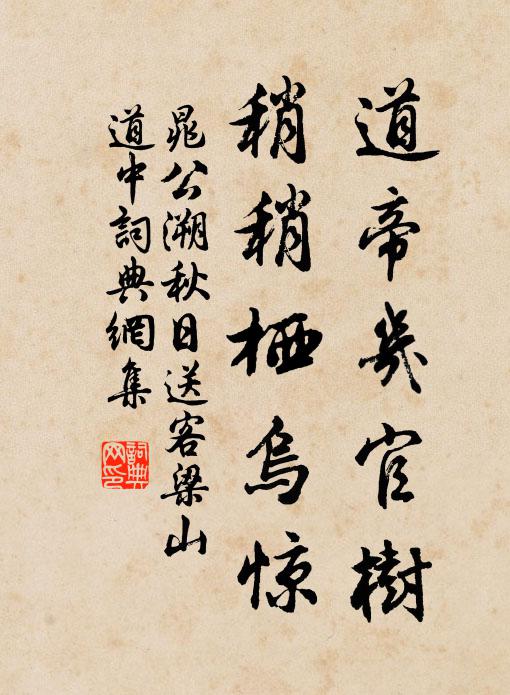 道帝幾官樹
稍稍栖烏惊
晁公溯秋日送客梁山
道中詞典網集
詞典
网印